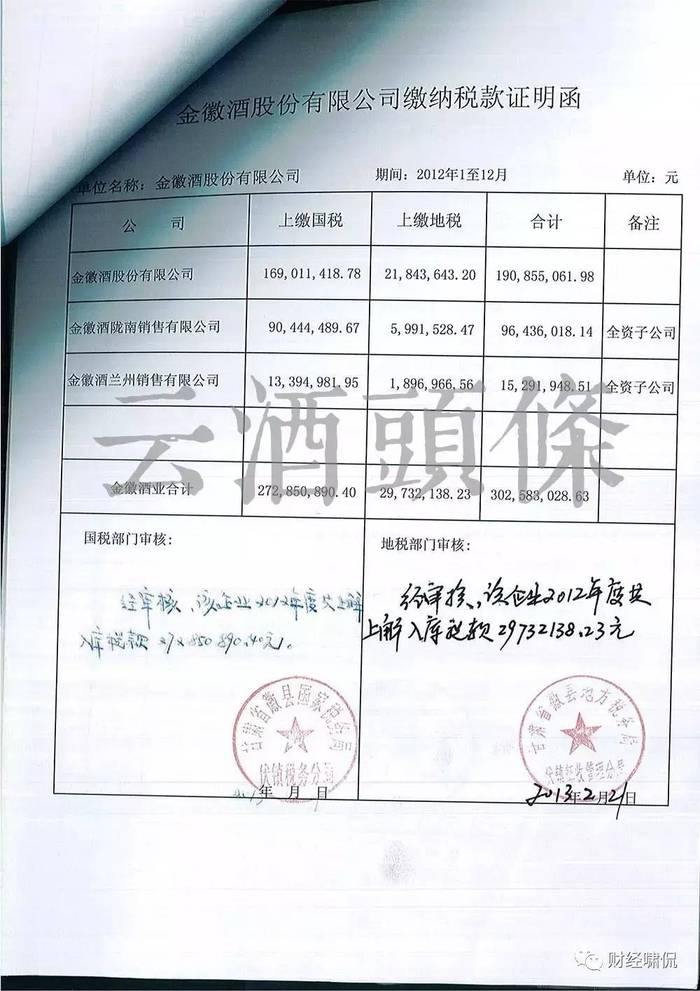 金徽酒股份有限公司缴纳税款证明函
单位名称：金徽酒股份有限公司 期间：2012年1至12月 单位：元
公 司 上缴国税 上缴地税 合计 备注
金徽酒股份有限公司 169,011,418.78 21,843,643.20 190,855,061.98
金徽酒陇南销售有限公司 90,444,489.67 5,991,528.47 96,436,018.14 全资子公司
金徽酒兰州销售有限公司 13,394,981.95 1,896,966.56 15,291,948.51 全资子公司
云酒頭條
金徽酒业合计 272,850,890.40 29,732,138.23 302,583,028.63
国税部门审核： 地税部门审核：
经审核、该企业2012年度共上解
入库税款272850890.40元。
经审核、该企业2012年度共
上解入库税款29732138.23元
甘肃省徽县国家税务局
伏镇税务分局
年 月 日
甘肃省徽县地方税务局
伏镇征收管理分局
2013年2月21日
财经啸侃